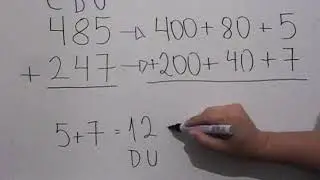 C D U
485 → 400 + 80 + 5
+ 247 → +200 + 40 + 7
5+7 = 12
D U